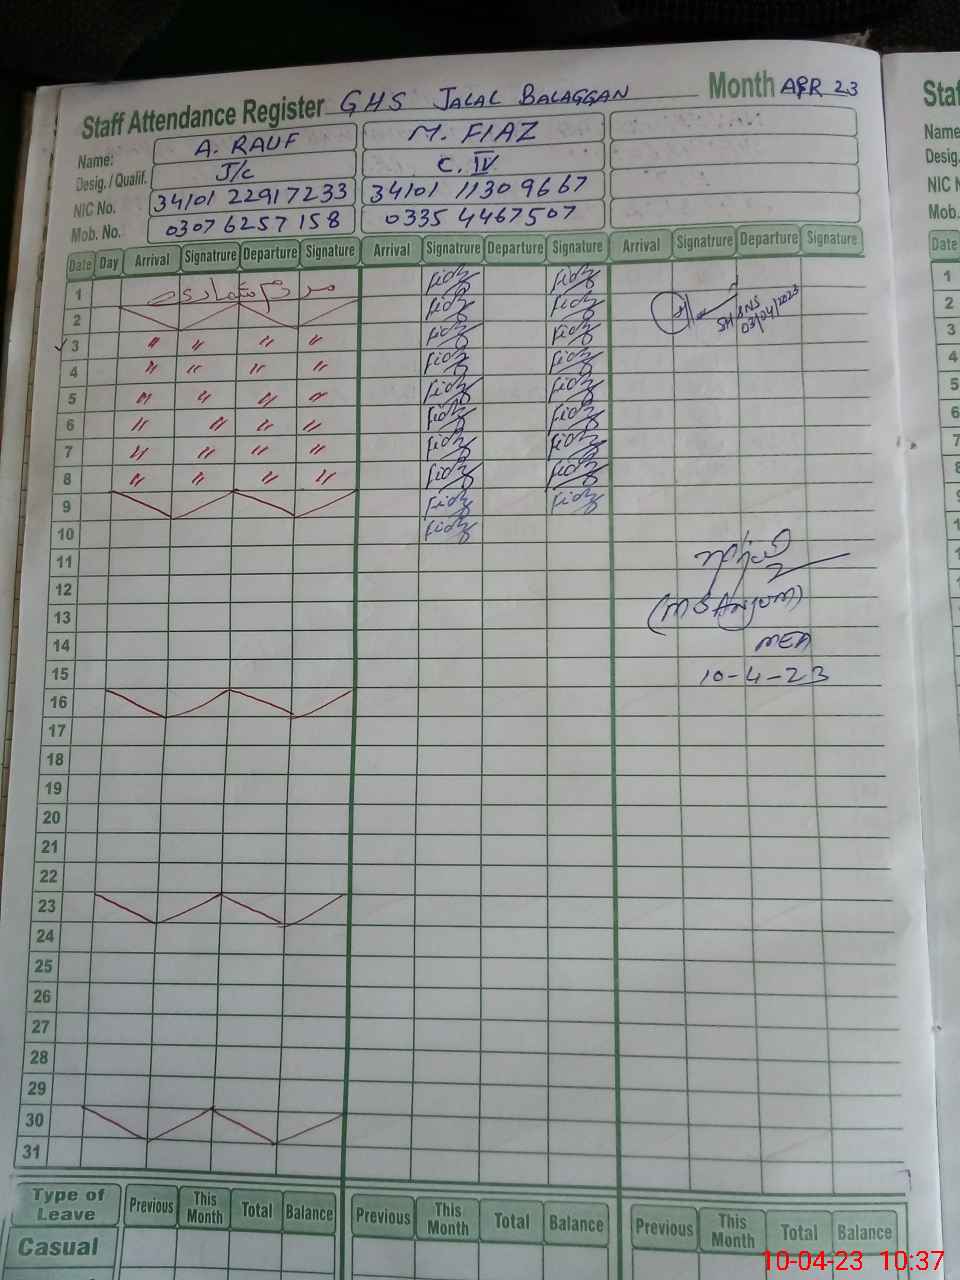 Staff Attendance Register GHS JALAL BALAGGAN Month APR 23
Name: A. RAUF M. FIAZ
Desig. / Qualif. J/c C. IV
NIC No. 34101 22917233 34101 11309667
Mob. No. 0307 6257 158 0335 4467507
Date Day Arrival Signatrure Departure Signature Arrival Signatrure Departure Signature Arrival Signatrure Departure Signature
1 مردم شماری Fiaz Fiaz
2 Fiaz Fiaz
SHSNS
03/04/2023
3 " " " " Fiaz Fiaz
4 " " " " Fiaz Fiaz
5 " " " " Fiaz Fiaz
6 " " " " Fiaz Fiaz
7 " " " " Fiaz Fiaz
8 " " " " Fiaz Fiaz
9 Fiaz Fiaz
10 Fiaz
11
12
13 (M S ANJUM)
14 MEA
15 10-4-23
16
17
18
19
20
21
22
23
24
25
26
27
28
29
30
31
Type of Leave Previous This Month Total Balance Previous This Month Total Balance Previous This Month Total Balance
Casual
10-04-23 10:37
Staf
Name
Desig.
NIC N
Mob.
Date
1
2
3
4
5
6
7
8